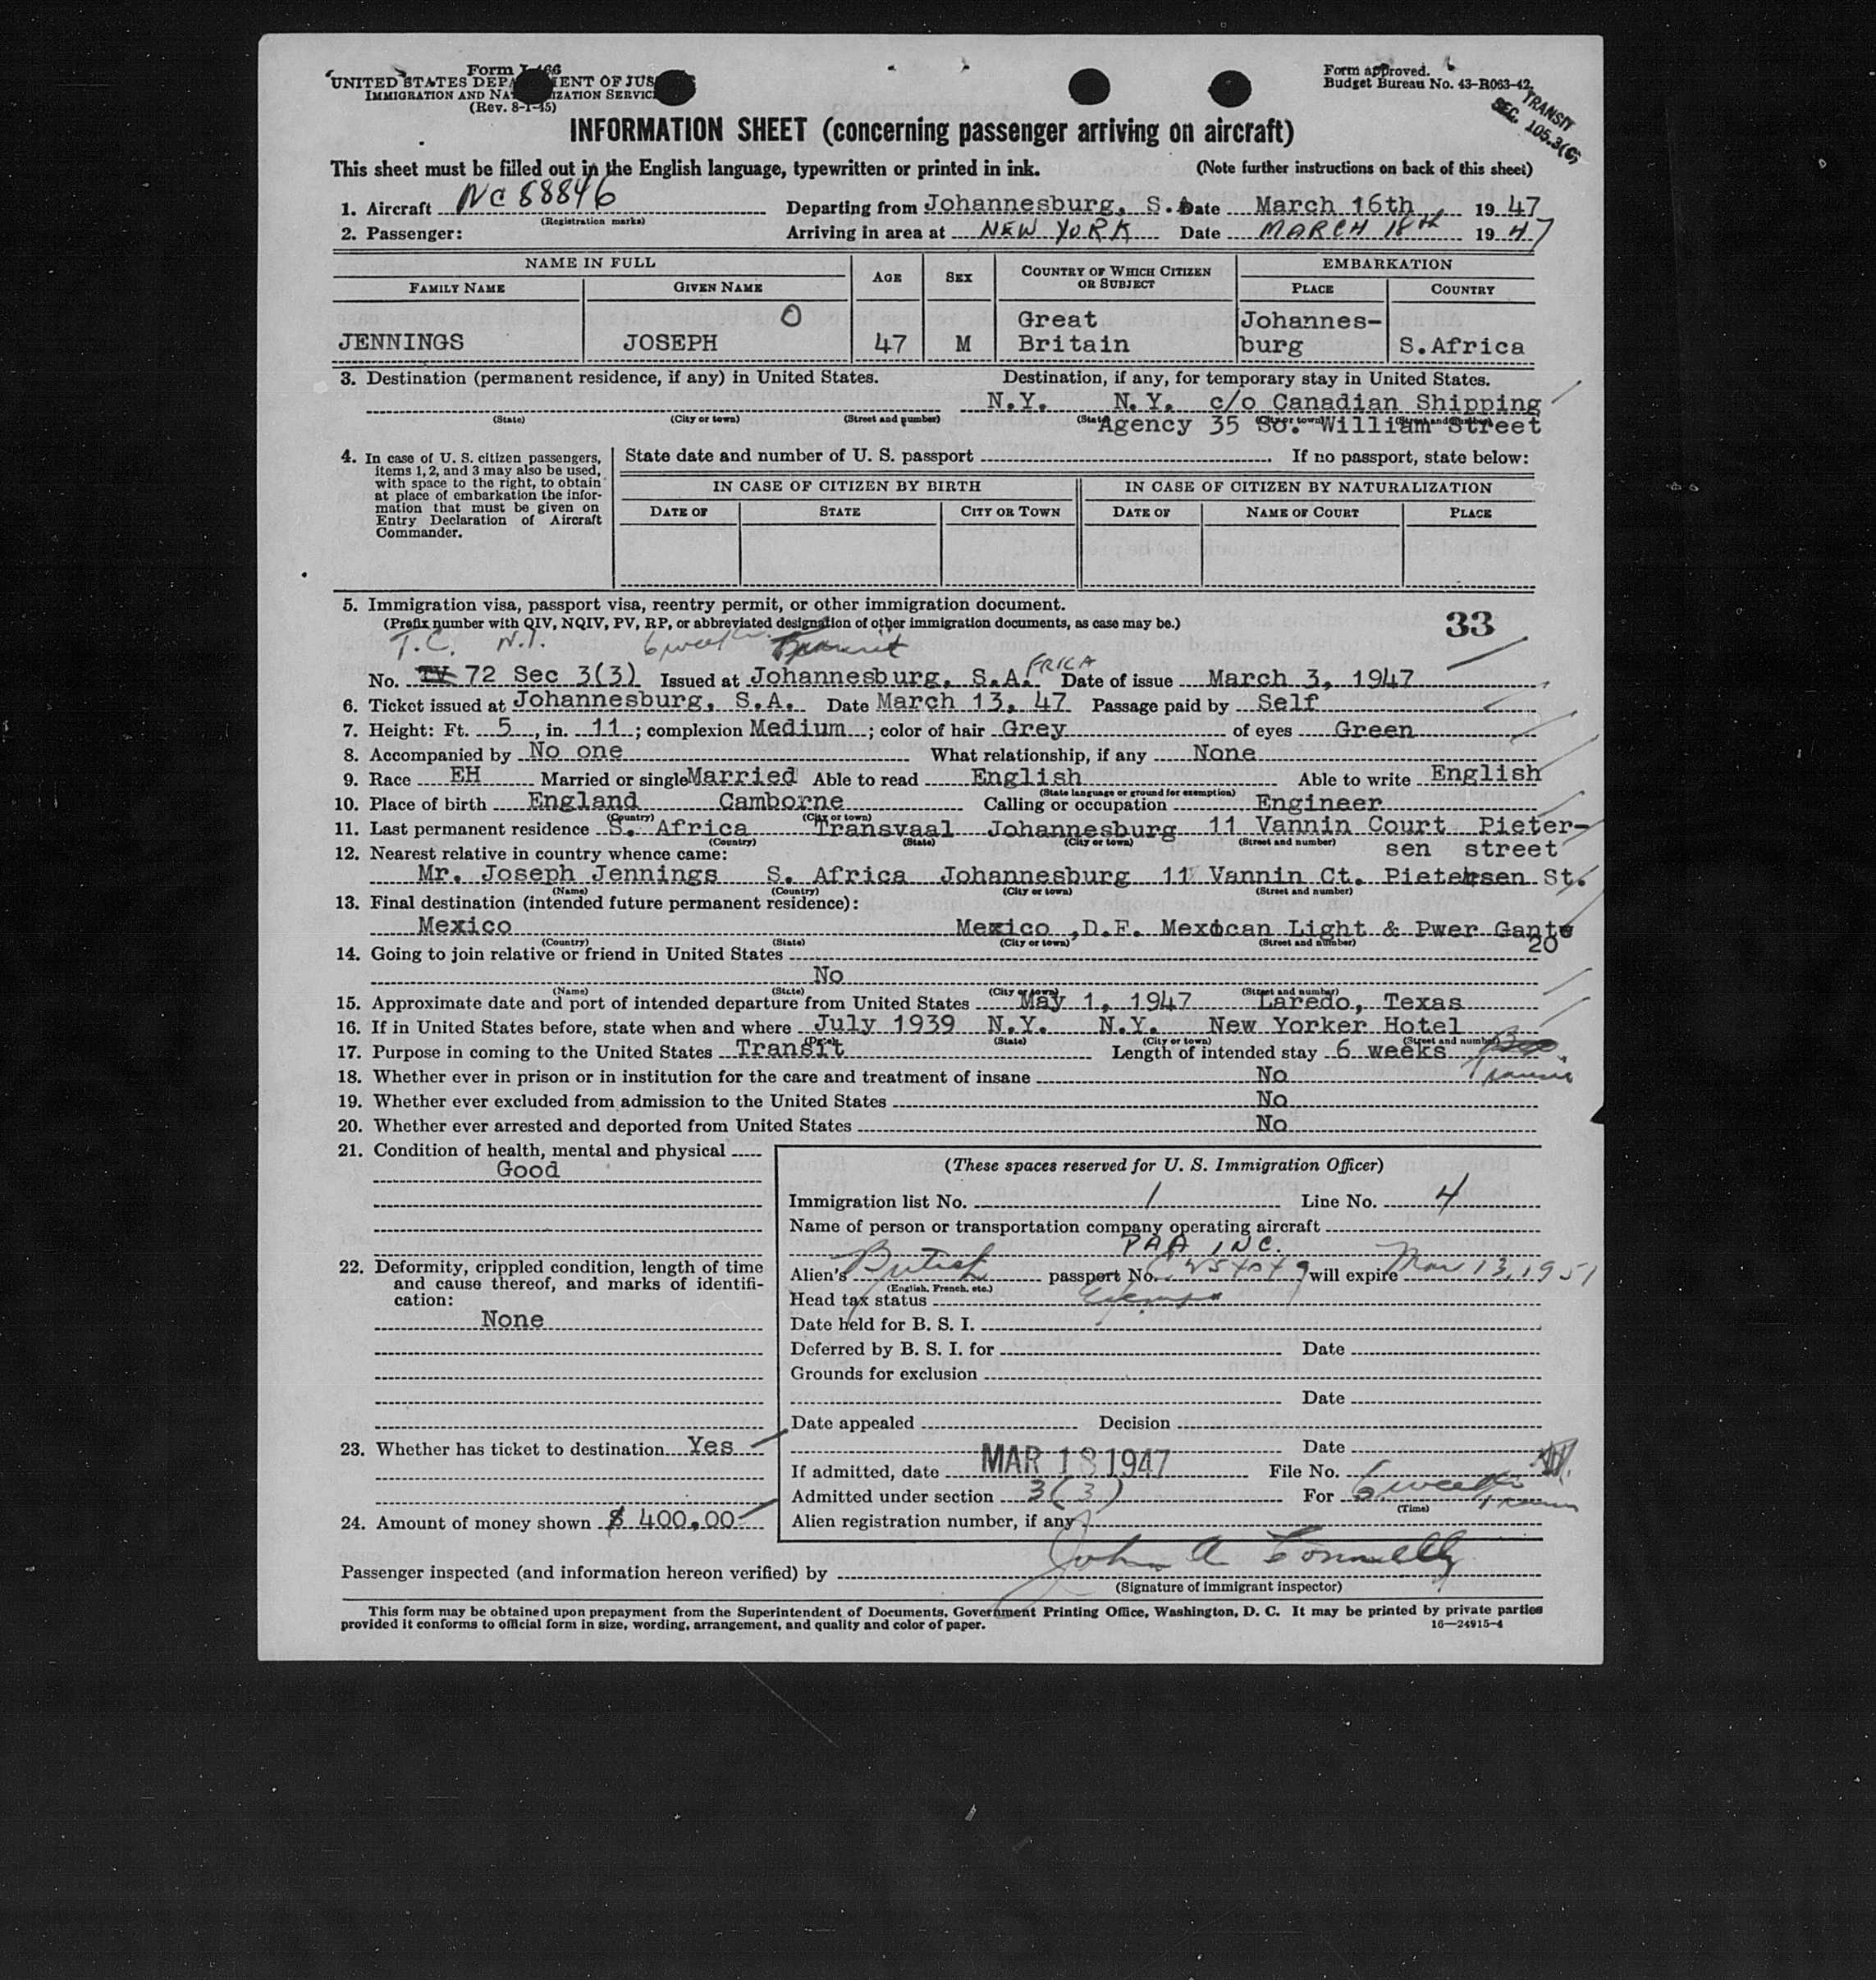 Form I-466
UNITED STATES DEPARTMENT OF JUSTICE
IMMIGRATION AND NATURALIZATION SERVICE
(Rev. 8-1-45)
Form approved.
Budget Bureau No. 43-R063-42.
TRANSIT
SEC. 105.3(C)
INFORMATION SHEET (concerning passenger arriving on aircraft)
This sheet must be filled out in the English language, typewritten or printed in ink. (Note further instructions on back of this sheet)
1. Aircraft NC 88846 Departing from Johannesburg, S.A. Date March 16th 19 47
(Registration marks)
2. Passenger: Arriving in area at NEW YORK Date MARCH 18th 19 47
NAME IN FULL AGE SEX COUNTRY OF WHICH CITIZEN OR SUBJECT EMBARKATION
FAMILY NAME GIVEN NAME PLACE COUNTRY
O Great Johannes-
JENNINGS JOSEPH 47 M Britain burg S.Africa
3. Destination (permanent residence, if any) in United States. Destination, if any, for temporary stay in United States.
N.Y. N.Y. c/o Canadian Shipping
(State) (City or town) (Street and number) (State) (City or town) (Street and number)
Agency 35 So. William Street
4. In case of U. S. citizen passengers, items 1, 2, and 3 may also be used, with space to the right, to obtain at place of embarkation the information that must be given on Entry Declaration of Aircraft Commander.
State date and number of U. S. passport If no passport, state below:
IN CASE OF CITIZEN BY BIRTH IN CASE OF CITIZEN BY NATURALIZATION
DATE OF STATE CITY OR TOWN DATE OF NAME OF COURT PLACE
5. Immigration visa, passport visa, reentry permit, or other immigration document.
(Prefix number with QIV, NQIV, PV, RP, or abbreviated designation of other immigration documents, as case may be.)
33
T.C. N.I. 6 weeks Transit
No. TV 72 Sec 3(3) Issued at Johannesburg, S.A.FRICA Date of issue March 3, 1947
6. Ticket issued at Johannesburg, S.A. Date March 13, 47 Passage paid by Self
7. Height: Ft. 5, in. 11; complexion Medium; color of hair Grey of eyes Green
8. Accompanied by No one What relationship, if any None
9. Race EH Married or single Married Able to read English Able to write English
(State language or ground for exemption)
10. Place of birth England Camborne Calling or occupation Engineer
(Country) (City or town)
11. Last permanent residence S. Africa Transvaal Johannesburg 11 Vannin Court Pieter-
(Country) (State) (City or town) (Street and number)
sen street
12. Nearest relative in country whence came:
Mr. Joseph Jennings S. Africa Johannesburg 11 Vannin Ct. Pietersen St.
(Name) (Country) (City or town) (Street and number)
13. Final destination (intended future permanent residence):
Mexico Mexico ,D.F. Mexican Light & Pwer Gante
20
(Country) (State) (City or town) (Street and number)
14. Going to join relative or friend in United States
No
(Name) (State) (City or town) (Street and number)
15. Approximate date and port of intended departure from United States May 1, 1947 Laredo, Texas
16. If in United States before, state when and where July 1939 N.Y. N.Y. New Yorker Hotel
(Date) (State) (City or town) (Street and number)
17. Purpose in coming to the United States Transit Length of intended stay 6 weeks
Transit
18. Whether ever in prison or in institution for the care and treatment of insane No
19. Whether ever excluded from admission to the United States No
20. Whether ever arrested and deported from United States No
21. Condition of health, mental and physical
Good
22. Deformity, crippled condition, length of time and cause thereof, and marks of identification:
None
23. Whether has ticket to destination Yes
24. Amount of money shown $ 400,00
(These spaces reserved for U. S. Immigration Officer)
Immigration list No. 1 Line No. 4
Name of person or transportation company operating aircraft
PAA INC.
Alien's British passport No. will expire Mar 13, 1951
(English, French, etc.)
Head tax status Exempt
Date held for B. S. I.
Deferred by B. S. I. for Date
Grounds for exclusion
Date
Date appealed Decision
Date
If admitted, date MAR 18 1947 File No.
Admitted under section 3(3) For 6 weeks Transit
(Time)
Alien registration number, if any
Passenger inspected (and information hereon verified) by John A Connelly
(Signature of immigrant inspector)
This form may be obtained upon prepayment from the Superintendent of Documents, Government Printing Office, Washington, D. C. It may be printed by private parties
provided it conforms to official form in size, wording, arrangement, and quality and color of paper. 16—24915-4